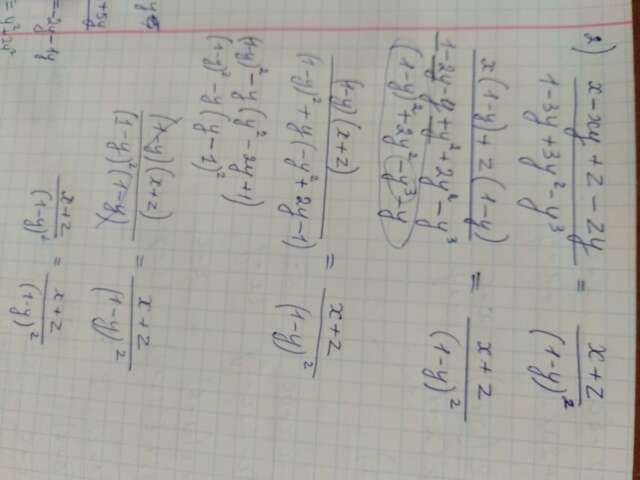 2) (x - xy + z - zy) / (1 - 3y + 3y² - y³) = (x + z) / (1-y)²
(x(1-y) + z(1-y)) / = (x + z) / (1-y)²
1 - 2y - y + y² + 2y² - y³
(1-y)² + 2y² - y³ - y
((1-y)(x+z)) / ((1-y)² + y(-y² + 2y - 1)) = (x + z) / (1-y)²
(1-y)² - y(y² - 2y + 1)
(1-y)² - y(y-1)²
((1-y)(x+z)) / ((1-y)²(1-y)) = (x + z) / (1-y)²
(x + z) / (1-y)² = (x + z) / (1-y)²
+ 5y
= 2y - 1y